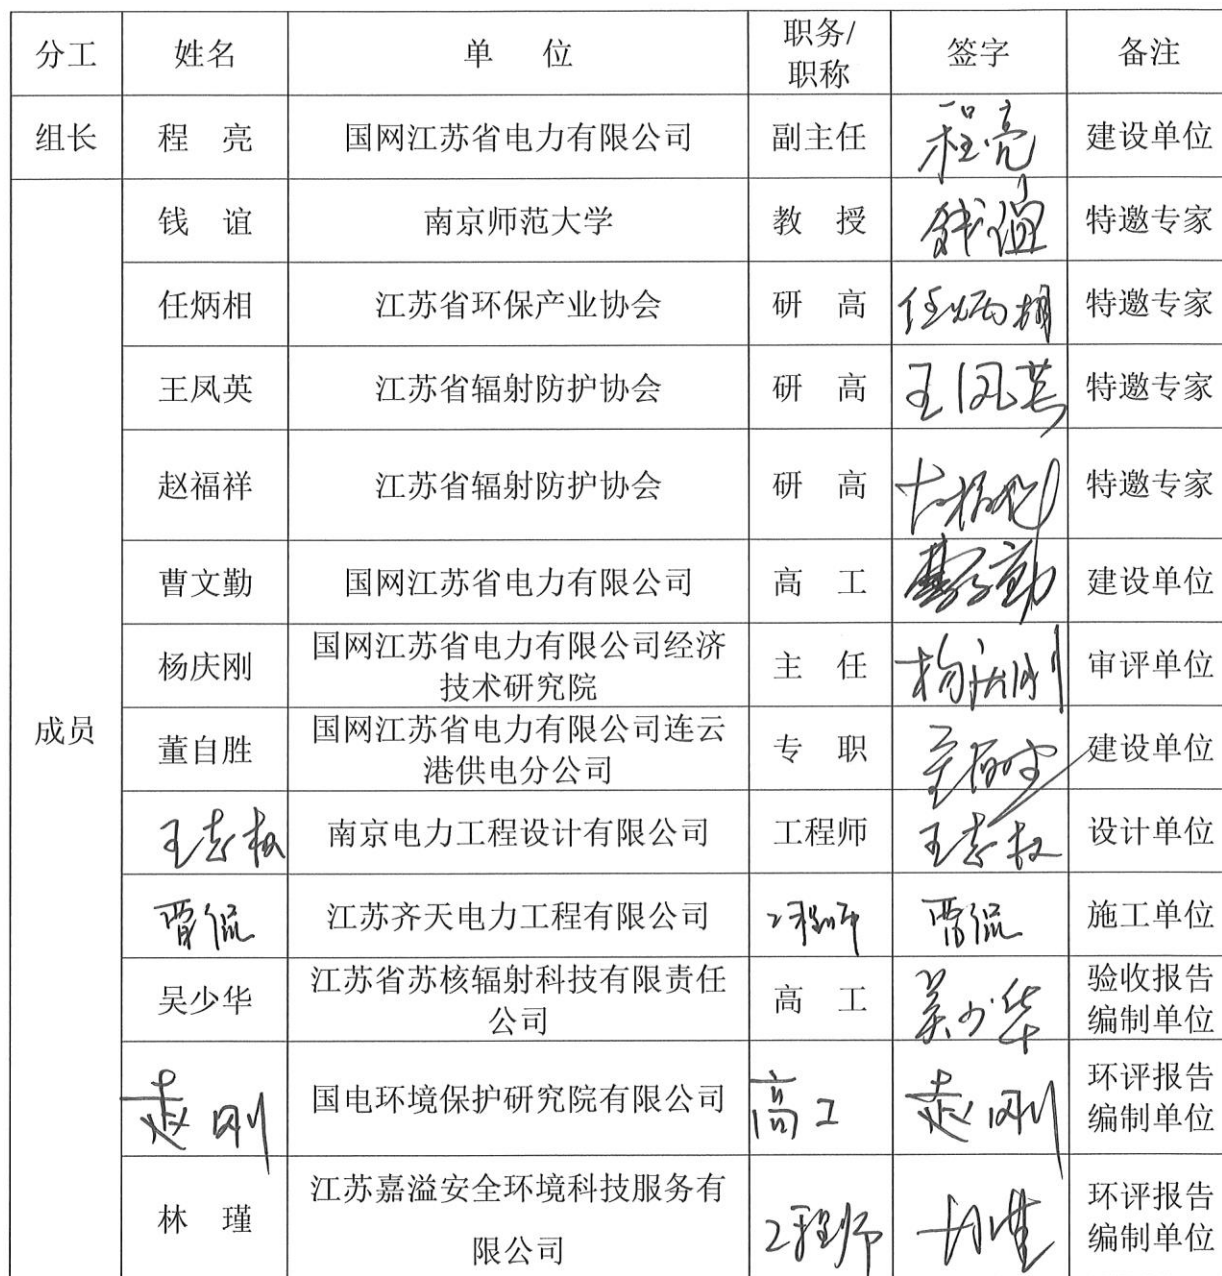 分工 姓名 单 位 职务/职称 签字 备注
组长 程 亮 国网江苏省电力有限公司 副主任 程亮 建设单位
成员
钱 谊 南京师范大学 教 授 钱谊 特邀专家
任炳相 江苏省环保产业协会 研 高 任炳相 特邀专家
王凤英 江苏省辐射防护协会 研 高 王凤英 特邀专家
赵福祥 江苏省辐射防护协会 研 高 特邀专家
曹文勤 国网江苏省电力有限公司 高 工 曹文勤 建设单位
杨庆刚 国网江苏省电力有限公司经济
技术研究院 主 任 杨庆刚 审评单位
董自胜 国网江苏省电力有限公司连云
港供电分公司 专 职 建设单位
王志权 南京电力工程设计有限公司 工程师 王志权 设计单位
贾侃 江苏齐天电力工程有限公司 工程师 贾侃 施工单位
吴少华 江苏省苏核辐射科技有限责任
公司 高 工 吴少华 验收报告
编制单位
赵刚 国电环境保护研究院有限公司 高工 赵刚 环评报告
编制单位
林 瑾 江苏嘉溢安全环境科技服务有
限公司 工程师 环评报告
编制单位